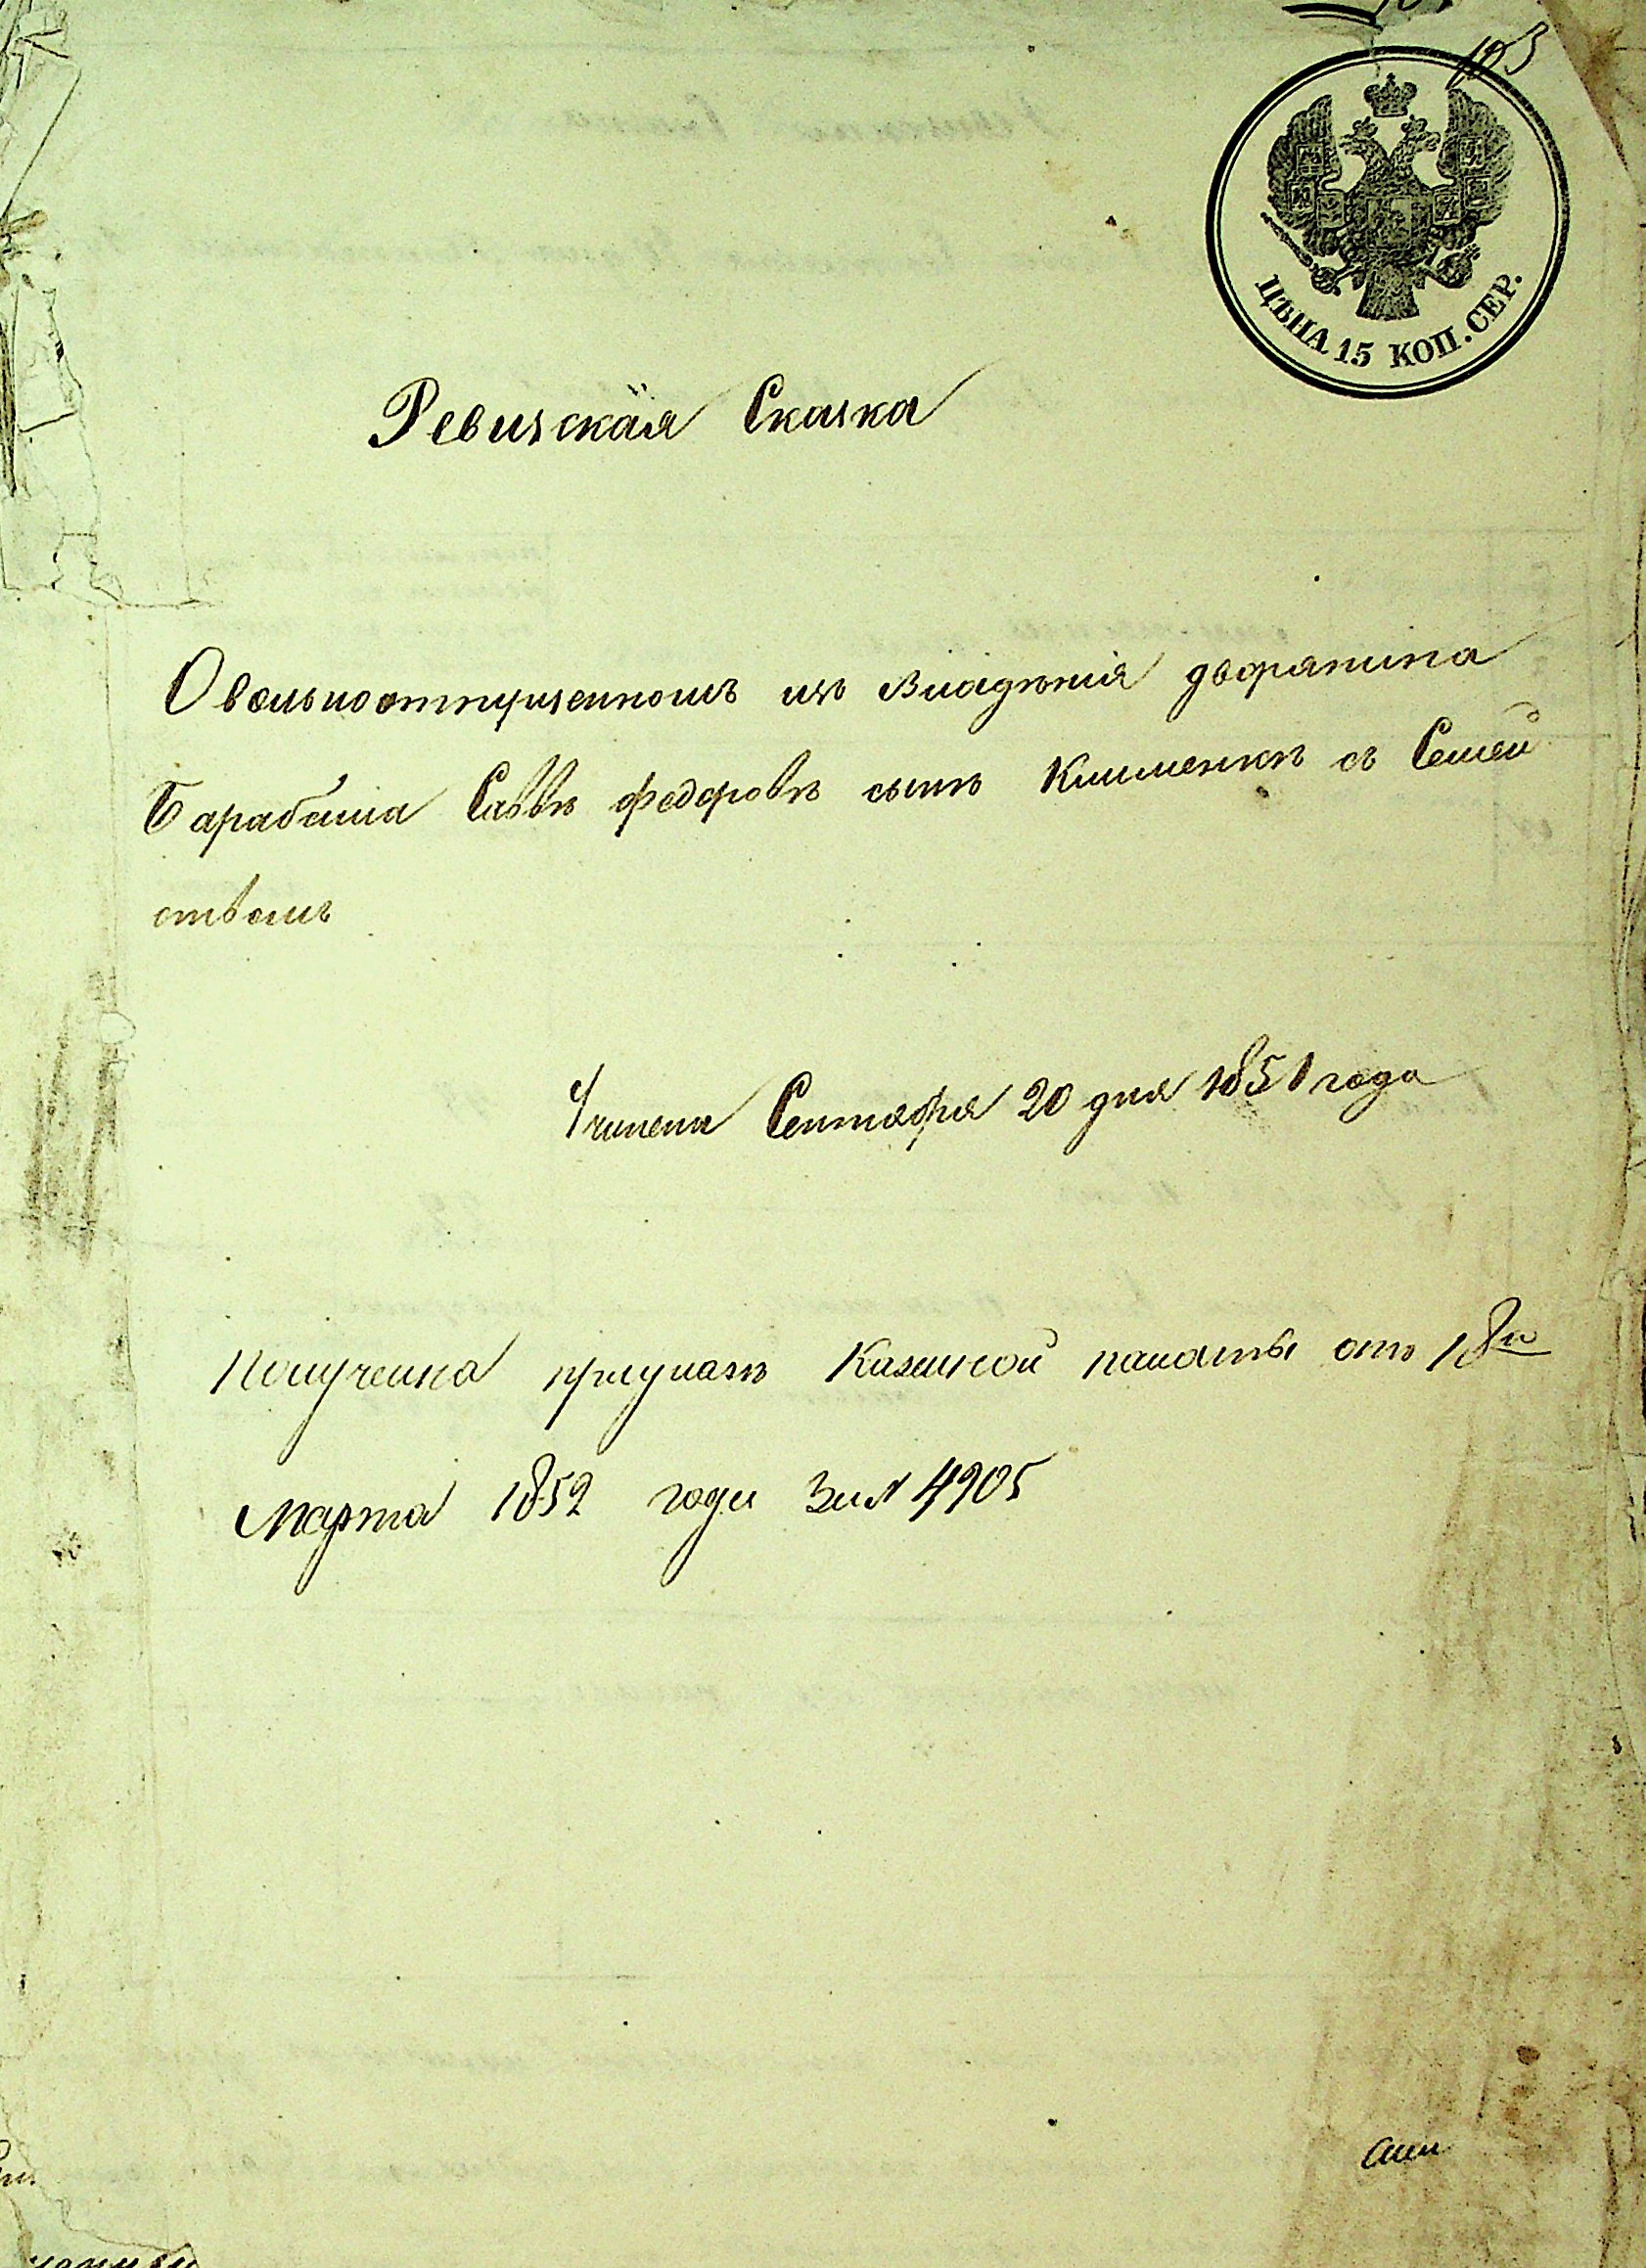 103
ЦѢНА 15 КОП. СЕР.
Ревизская Сказка
О вольноотпущенномъ изъ владѣнія дворянина
Барабаша Саввѣ Федоровѣ сынѣ Клименкѣ съ Семей
ствомъ
Учинена Сентября 20 дня 1851 года
Получена при указѣ Казенной палаты отъ 18го
Марта 1852 года За № 4905